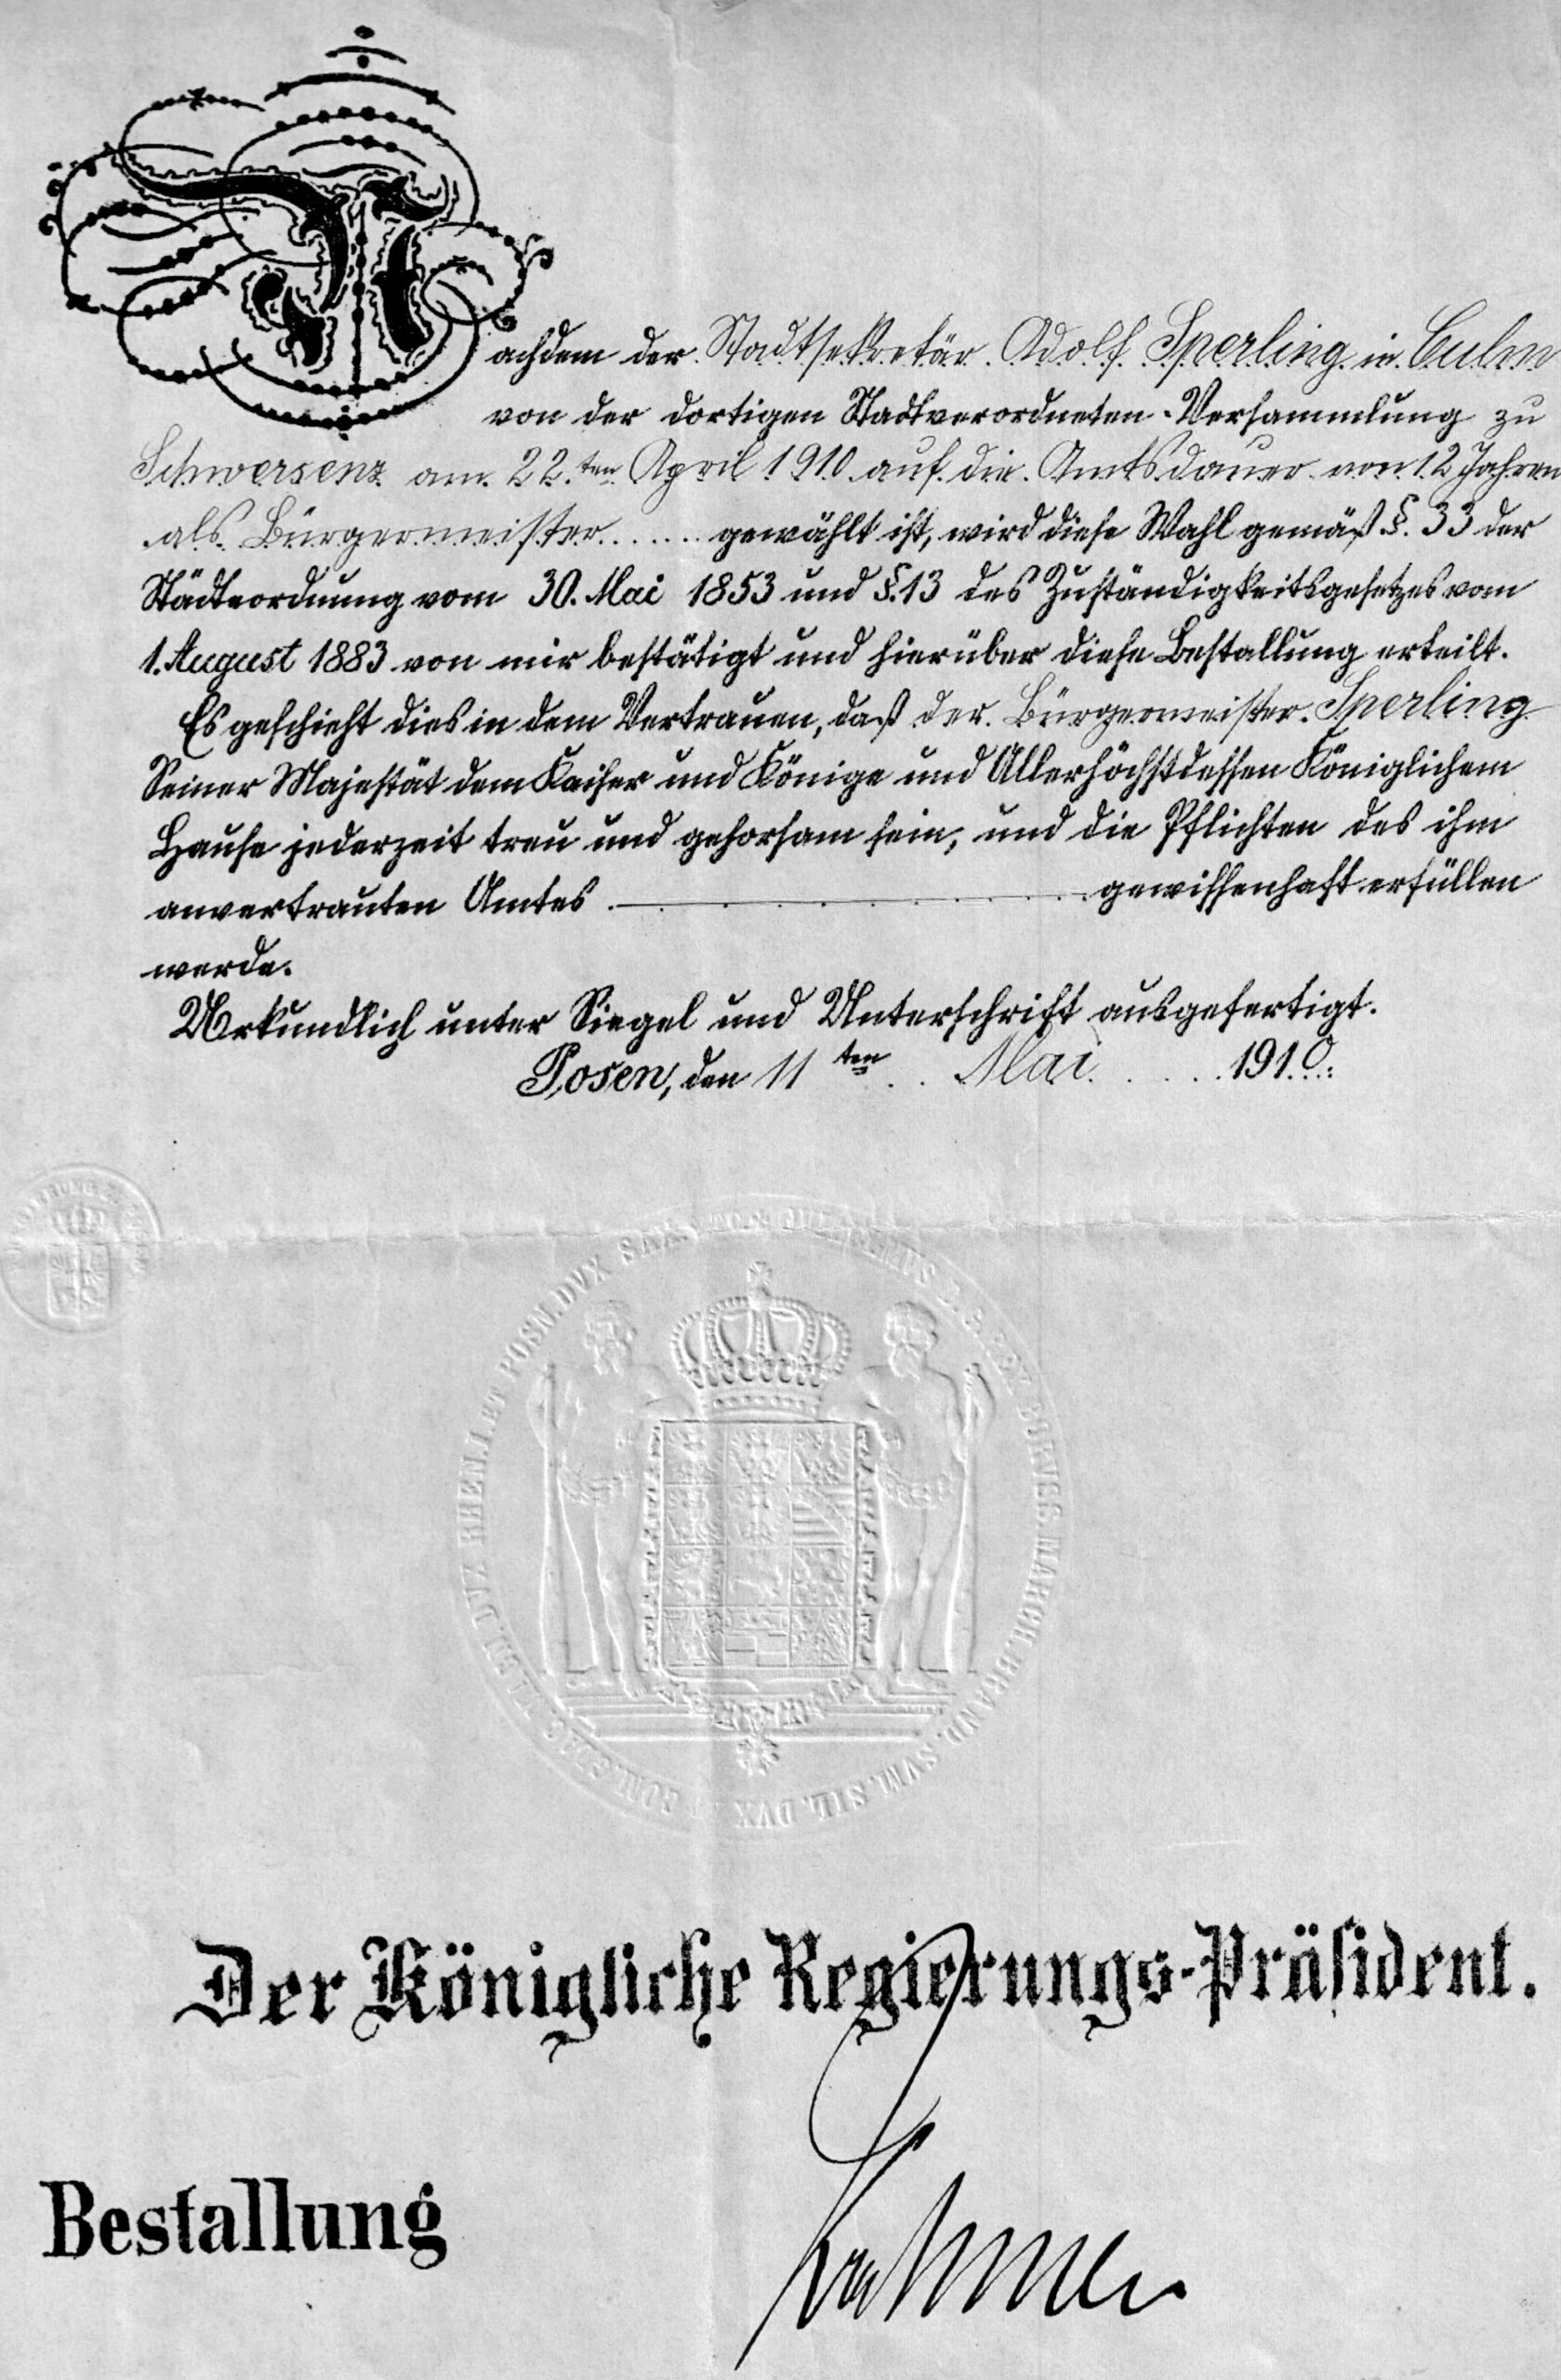 Nachdem der Stadtsekretär Adolf Sperling in Culm
von der dortigen Stadtverordneten-Versammlung zu
Schwersenz am 22.ten April 1910 auf die Amtsdauer von 12 Jahren
als Bürgermeister ...... gewählt ist, wird diese Wahl gemäß §. 33 der
Städteordnung vom 30. Mai 1853 und §. 13 des Zuständigkeitsgesetzes vom
1. August 1883 von mir bestätigt und hierüber diese Bestallung erteilt.
Es geschieht dies in dem Vertrauen, daß der Bürgermeister Sperling
Seiner Majestät dem Kaiser und Könige und Allerhöchstdessen Königlichem
Hause jederzeit treu und gehorsam sein, und die Pflichten des ihm
anvertrauten Amtes gewissenhaft erfüllen
werde.
Urkundlich unter Siegel und Unterschrift ausgefertigt.
Posen, den 11ten Mai 1910.
POSN. DVX SAX.
BORVSS. MARCH. BRAND. SVM. SIL. DVX
DVX RHEN. I. ET
Der Königliche Regierungs-Präsident.
Bestallung